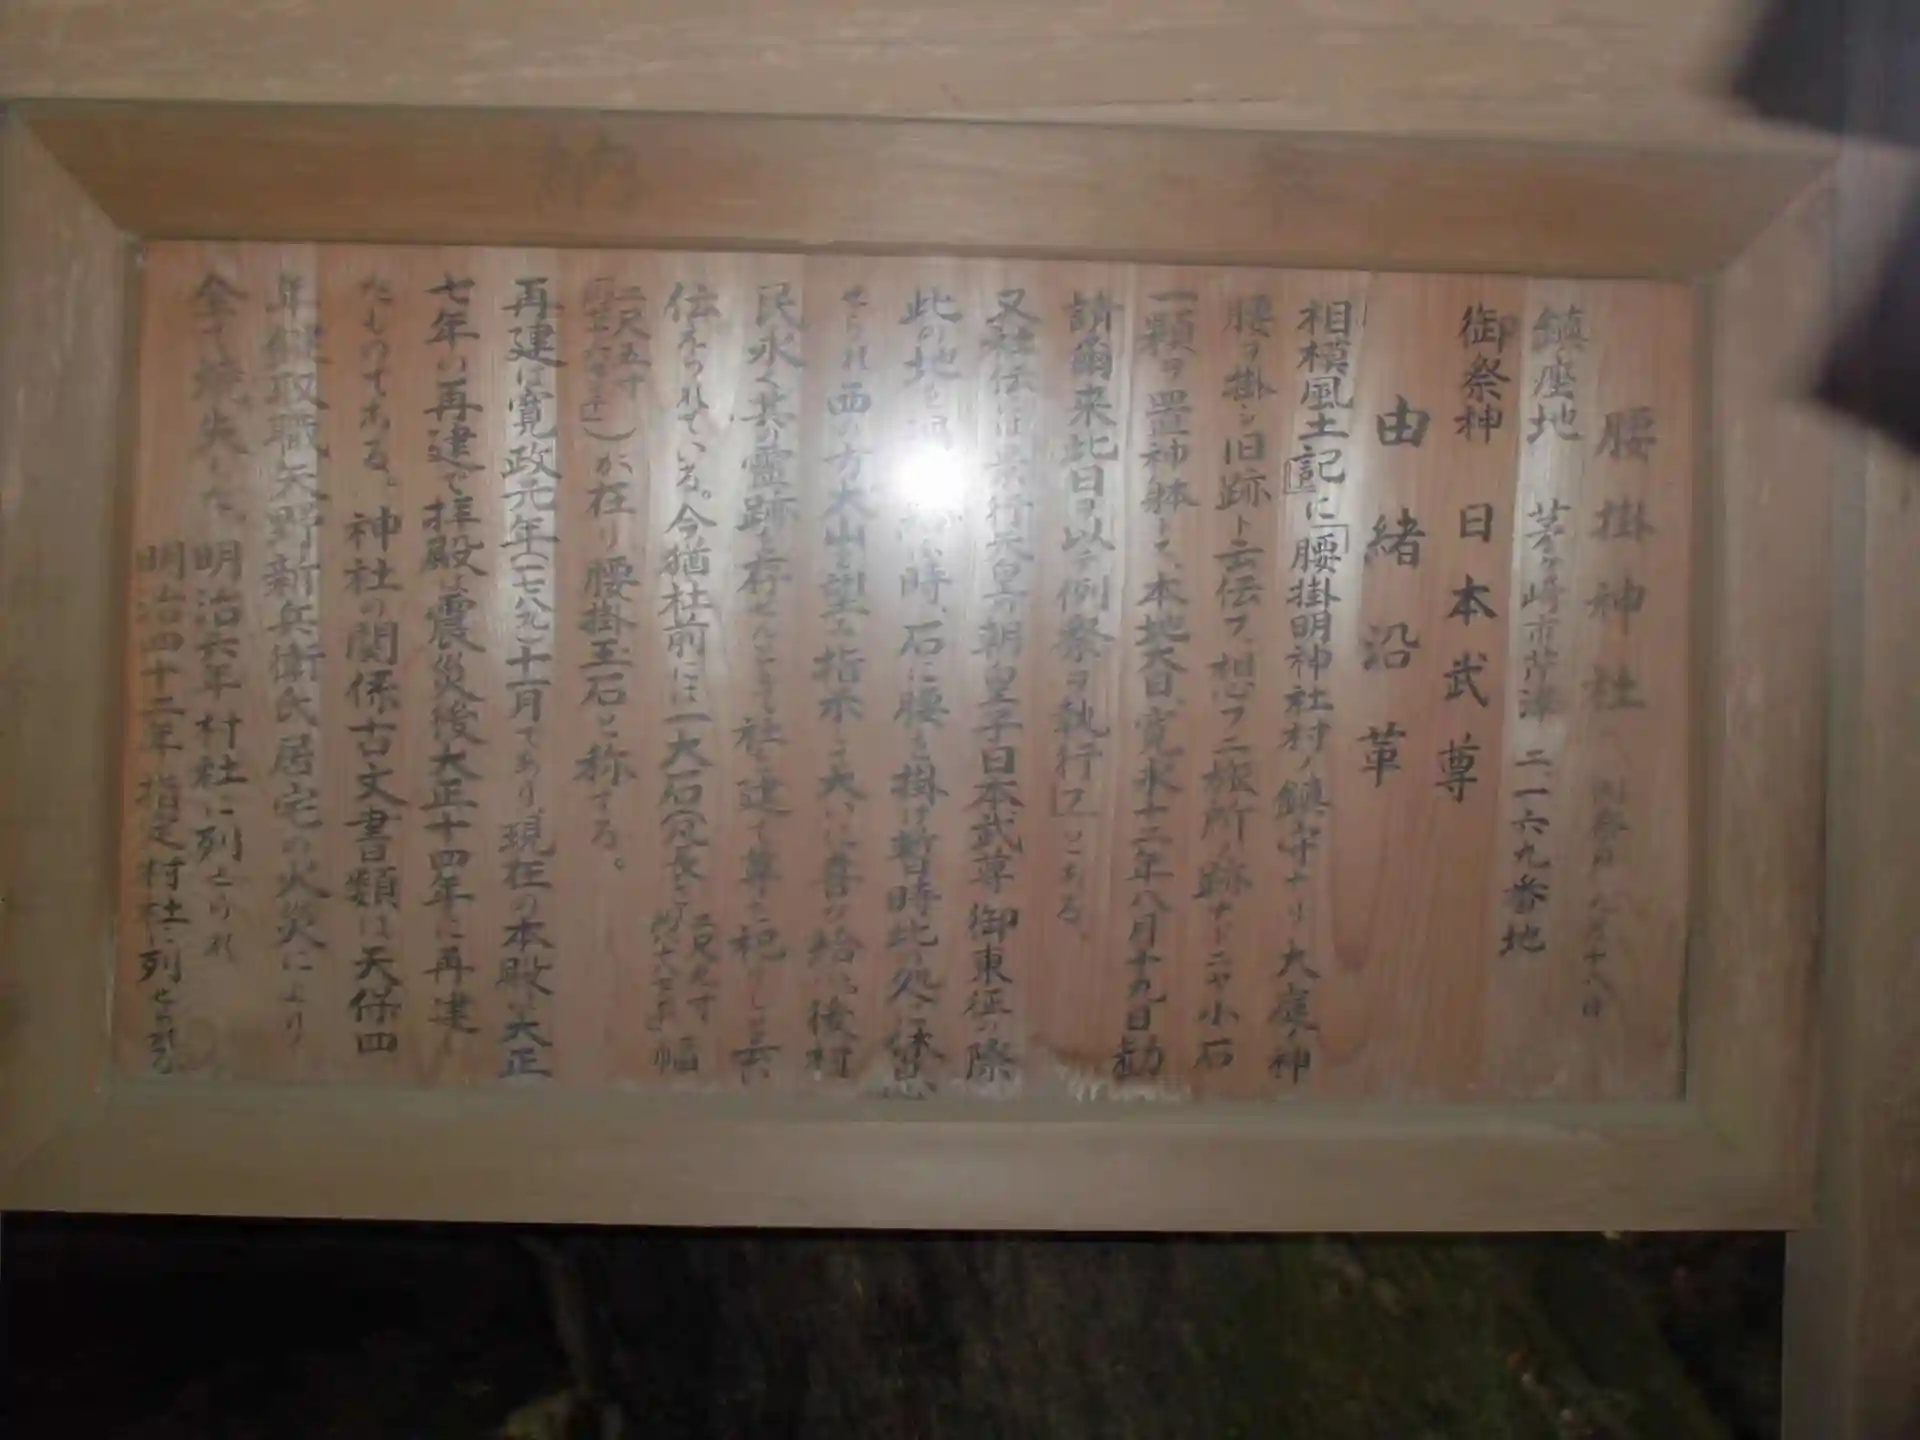 納
腰掛神社 例祭日 九月十八日
鎮座地 茅ヶ崎市芹沢 二、一六九番地
御祭神 日本武尊
由緒沿革
相模風土記」に「腰掛明神社村ノ鎮守ナリ大庭ノ神
腰ヲ掛シ旧跡ト云伝フ、想フニ旅所ノ跡ナドニヤ小石
一顆ヲ置神躰トス、本地大日、寛永十二年八月十九日勧
請爾来此日ヲ以テ例祭ヲ執行フ」とある。
又社伝には景行天皇の朝皇子日本武尊御東征の際
此の地を 時、石に腰を掛け暫時此の処に休息
せられ西の方大山を望み指示して大いに喜び給い後村
民永く其の霊跡を存せんとして社を建て尊を祀りしと云い
伝えられている。今猶社前には一大石(冗長さ 三尺 寸 幅
二尺五寸 )が在り腰掛玉石と称する。
再建は寛政元年(一七八九)十一月であり、現在の本殿は大正
七年の再建で拝殿は震災後大正十四年に再建し
たものである。神社の関係古文書類は天保四
年鍵取職矢野新兵衛氏居宅の火災により
全て焼失した。明治六年村社に列せられ
明治四十二年指定村社に列せらる